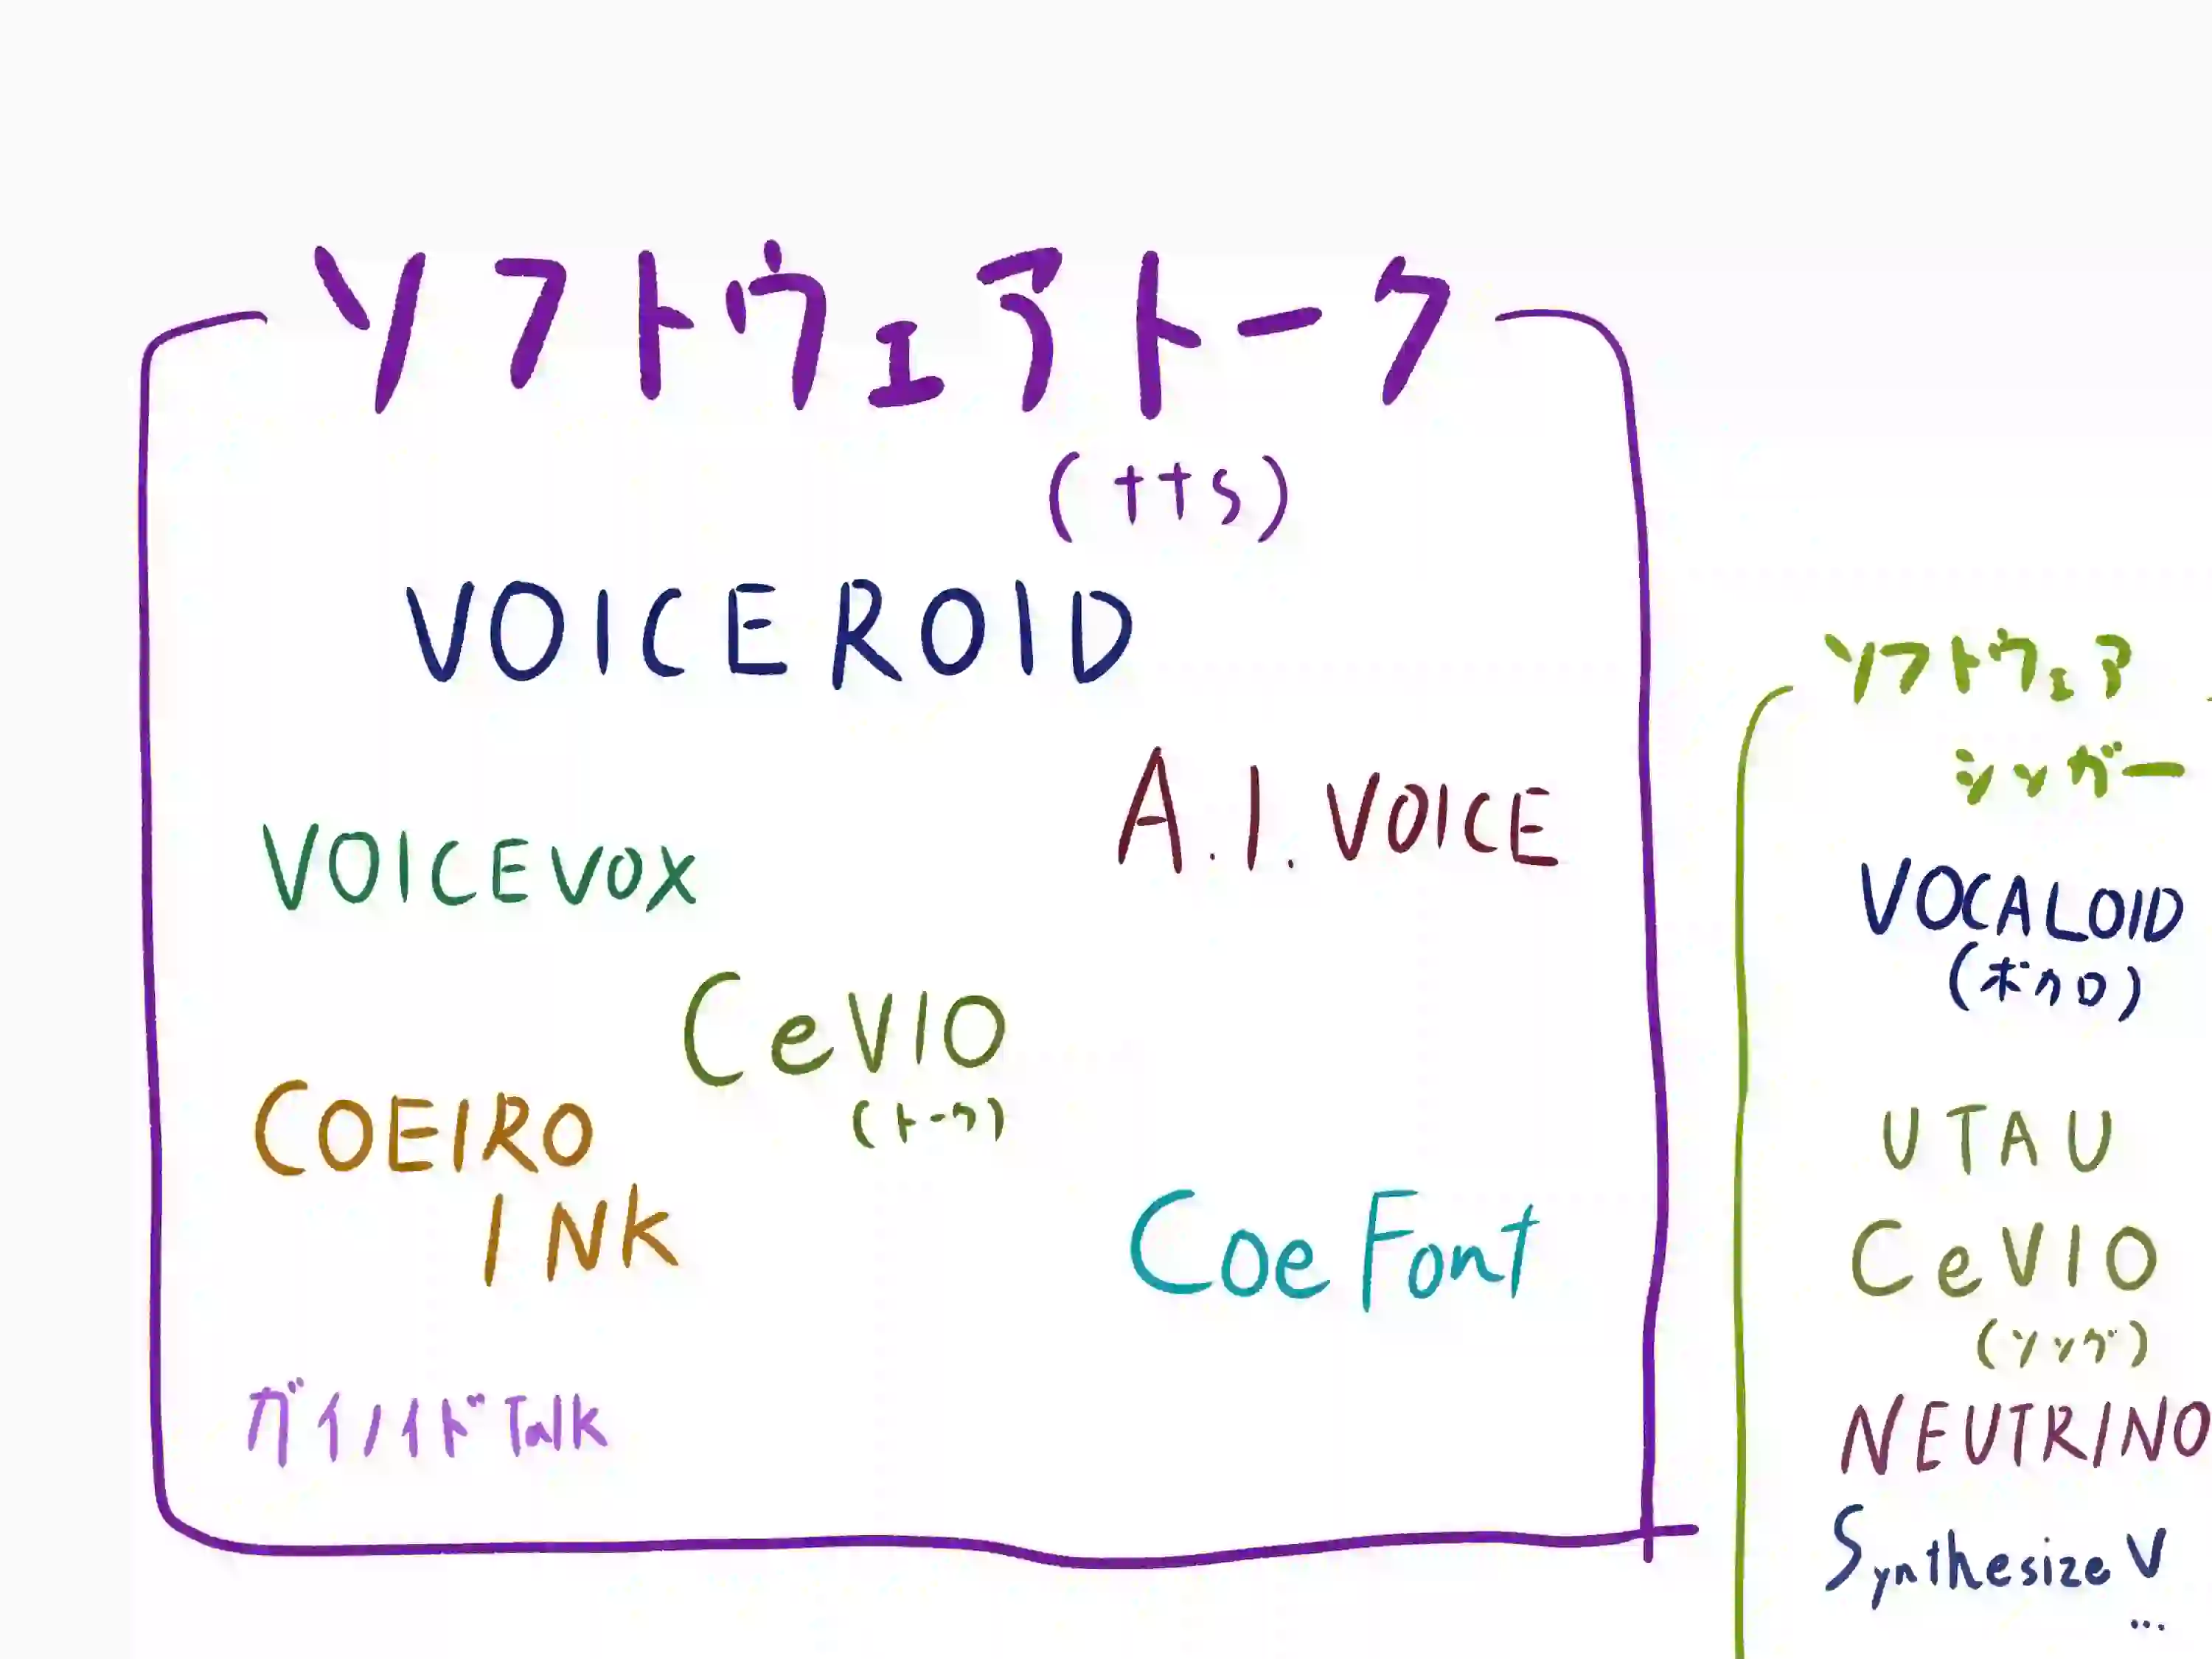 ソフトウェアトーク
(tts)
VOICEROID
A.I.VOICE
VOICEVOX
CeVIO
(トーク)
COEIRO
INK
CoeFont
ガイノイドTalk
ソフトウェア
シンガー
VOCALOID
(ボカロ)
UTAU
CeVIO
(ソング)
NEUTRINO
Synthesize V
...